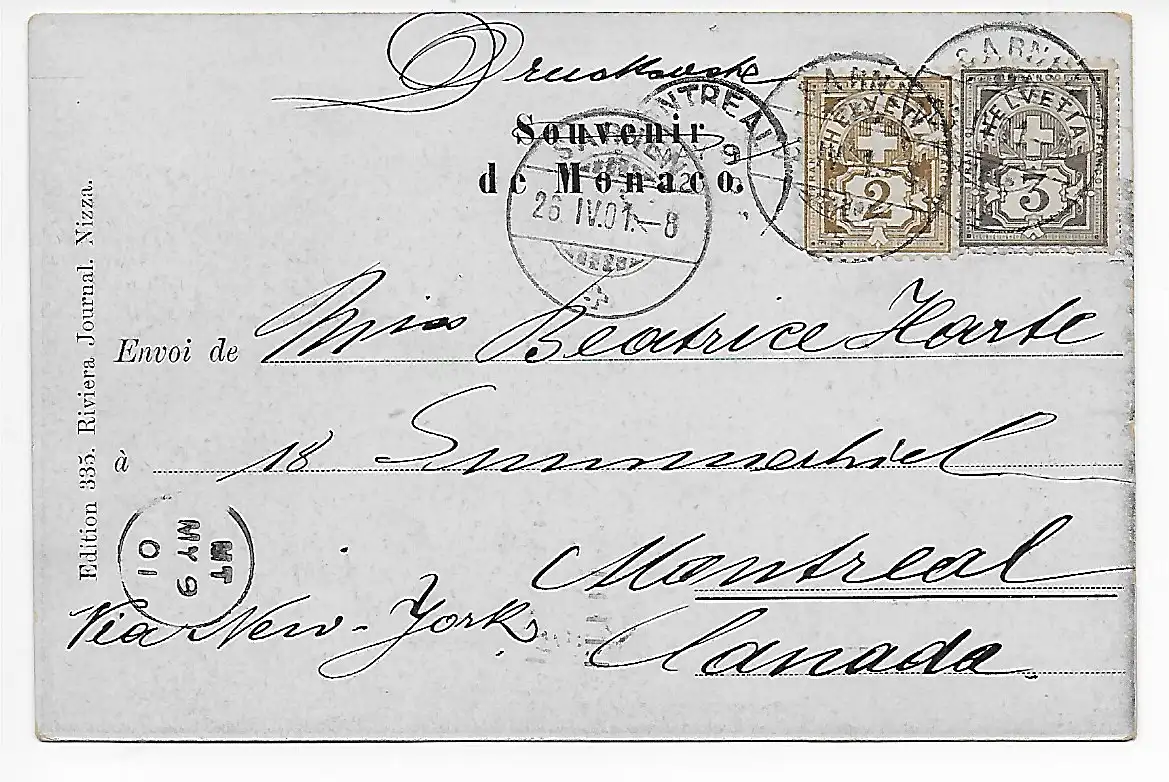 Drucksache
Souvenir
de Monaco.
MONTREAL
9
SARNEN
26.IV.01.–8
SARNEN
HELVETIA
2
SARNEN
HELVETIA
3
Envoi de Miss Beatrice Harte
à 18 Summerhill
Montreal
Canada.
Via New-York
MT
MY 9
01
Edition 335. Riviera Journal. Nizza.